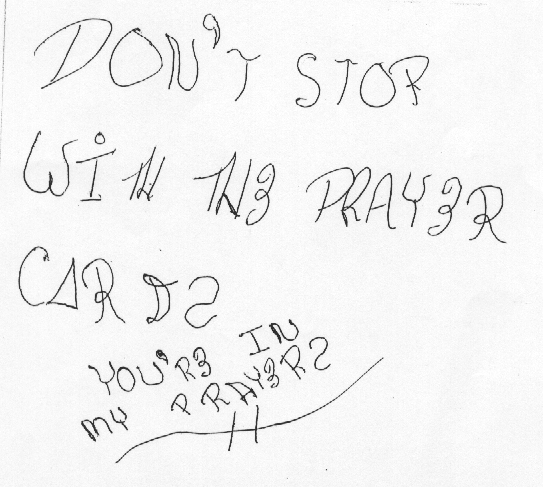 DON'T STOP
WITH THE PRAYER
CARDS
YOU'RE IN
MY PRAYERS